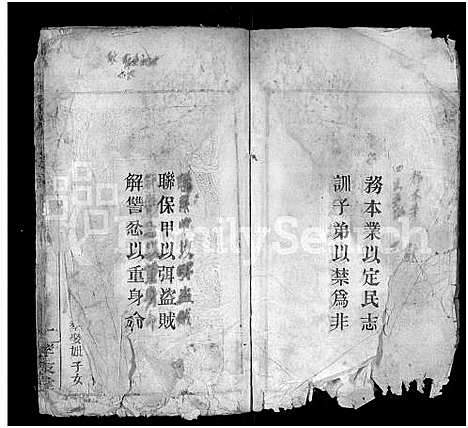 務本業以定民志
訓子弟以禁爲非
聯保甲以弭盜賊
解讐忿以重身命
FamilySearch